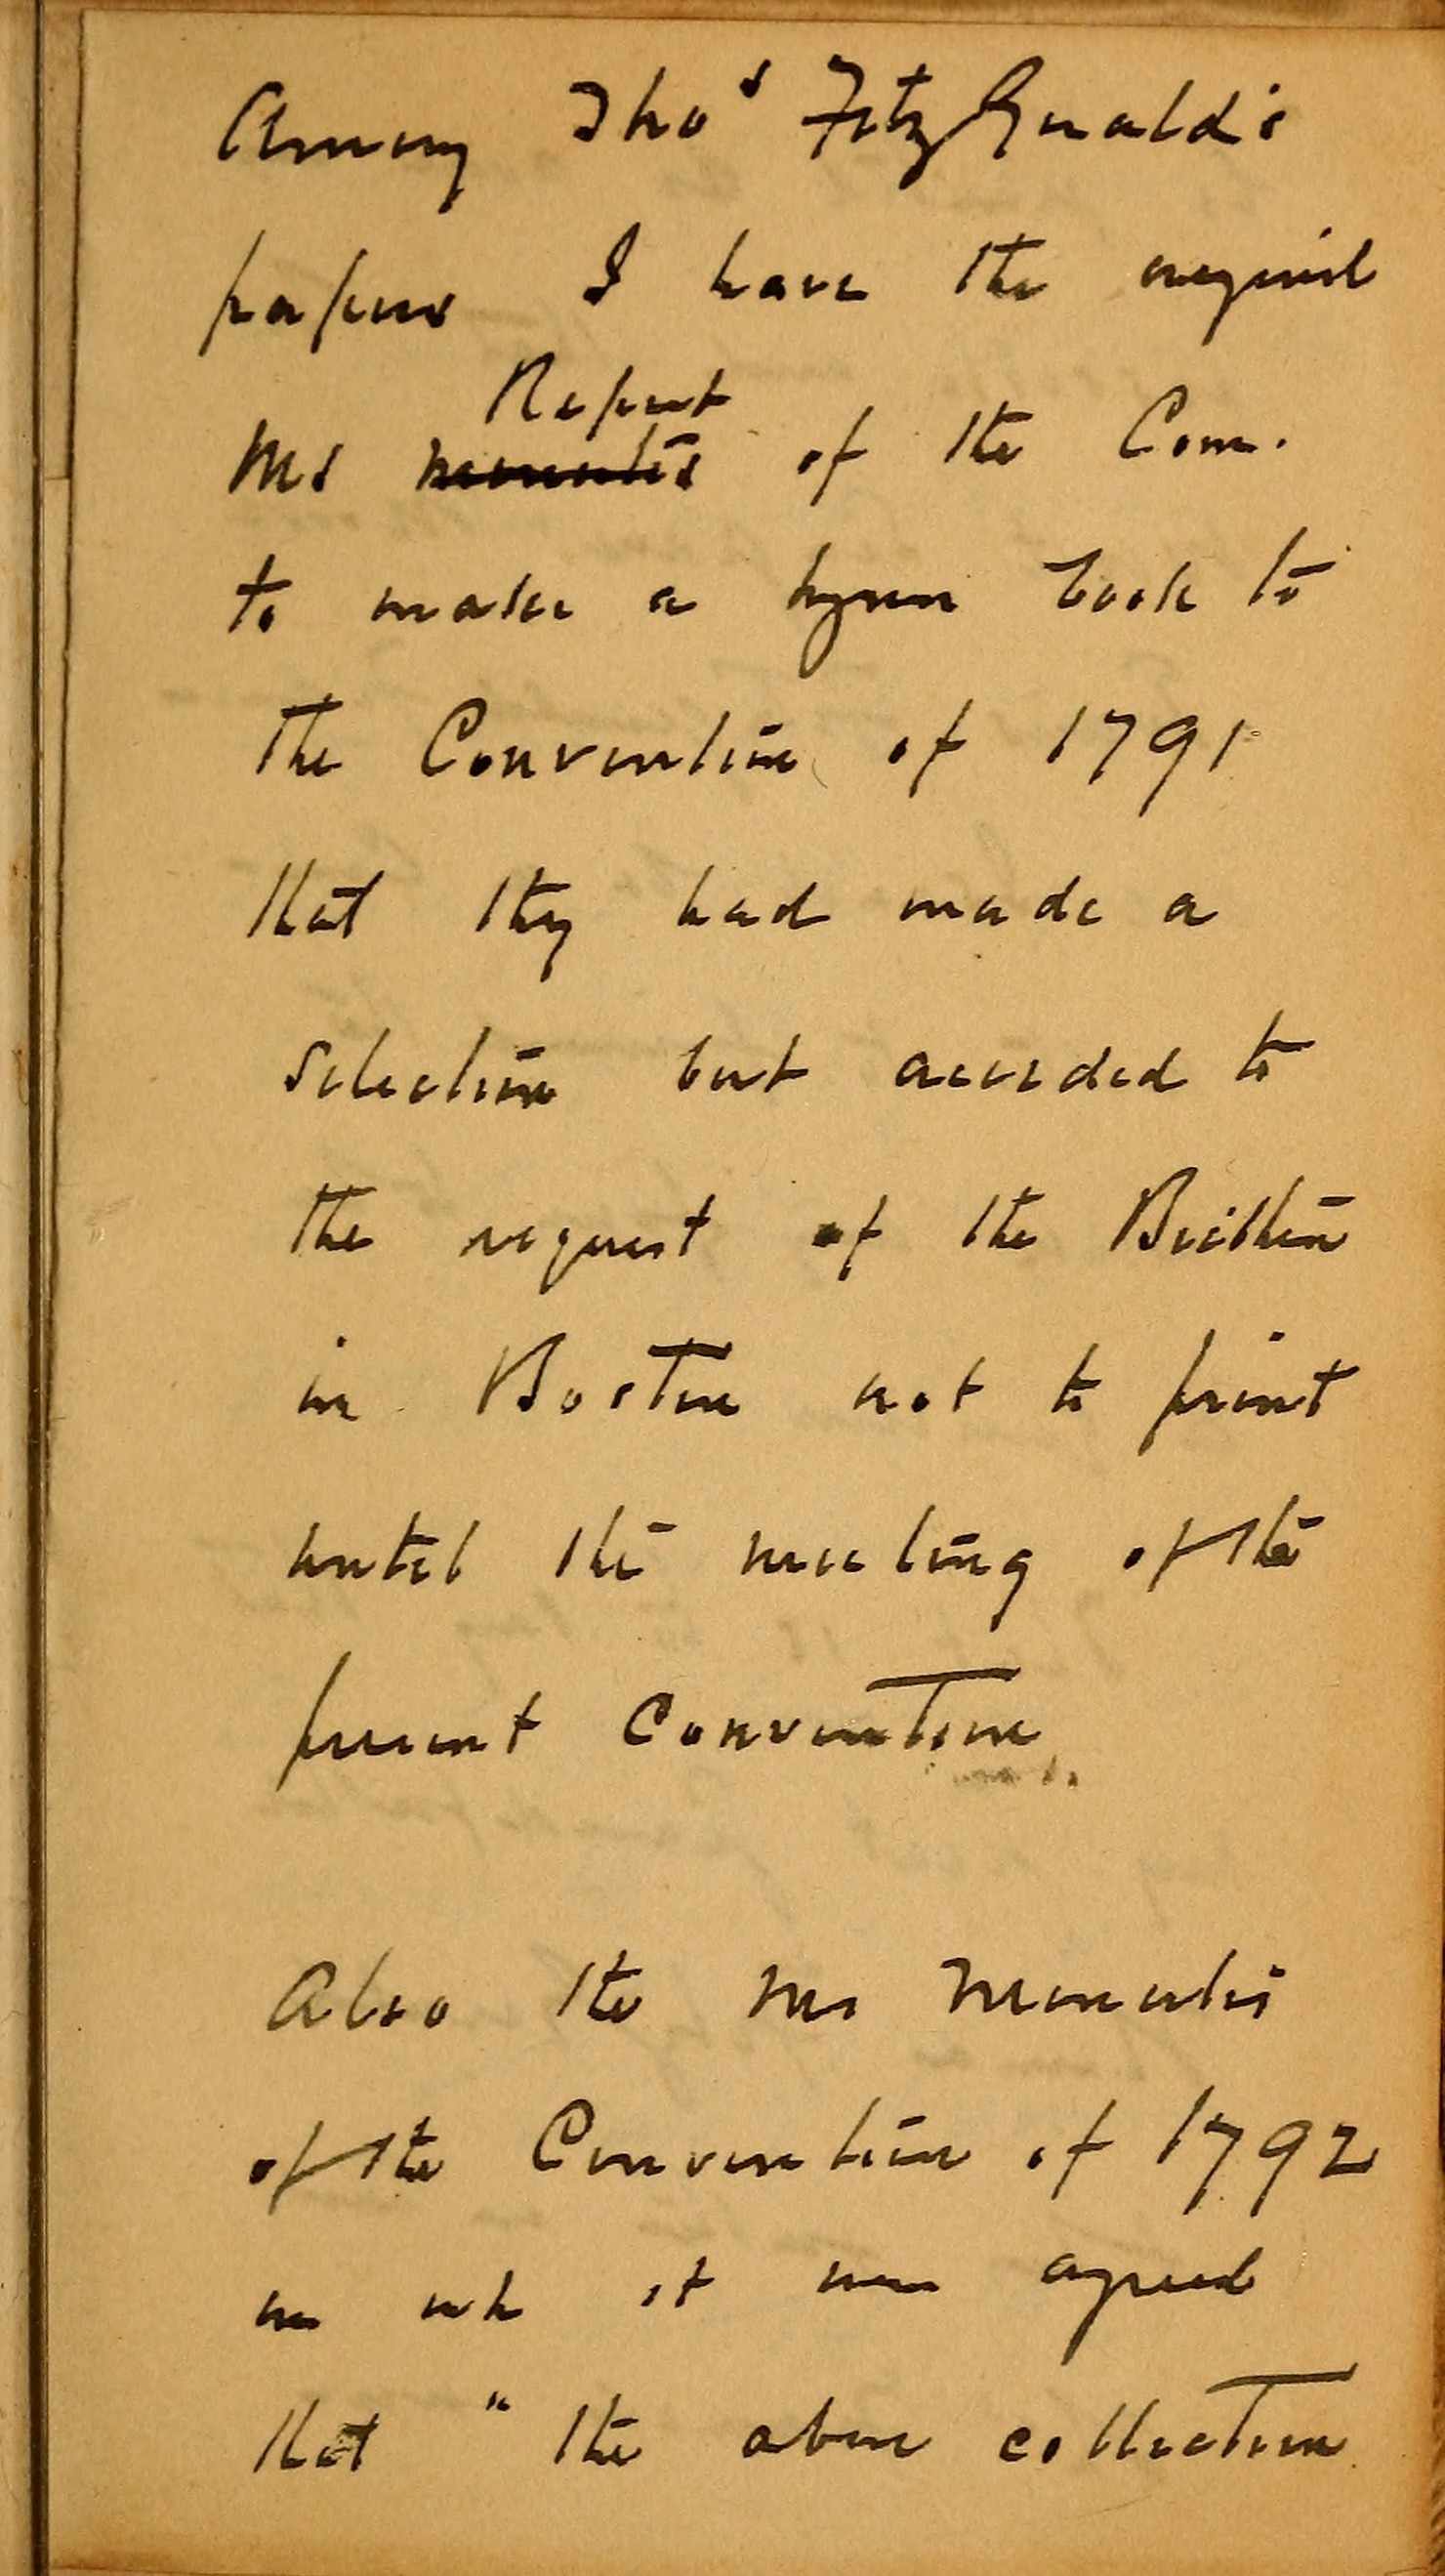 Among Thos FitzGerald's
papers I have the original
Ms minutes Report of the Com.
to make a hymn book to
the Convention of 1791
that they had made a
selection but acceded to
the request of the Brethren
in Boston not to print
until the meeting of the
present Convention.
Also the Ms minutes
of the Convention of 1792
in wh it was agreed
that " the above collection